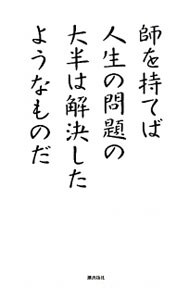 師を持てば
人生の問題の
大半は解決した
ようなものだ
潮出版社